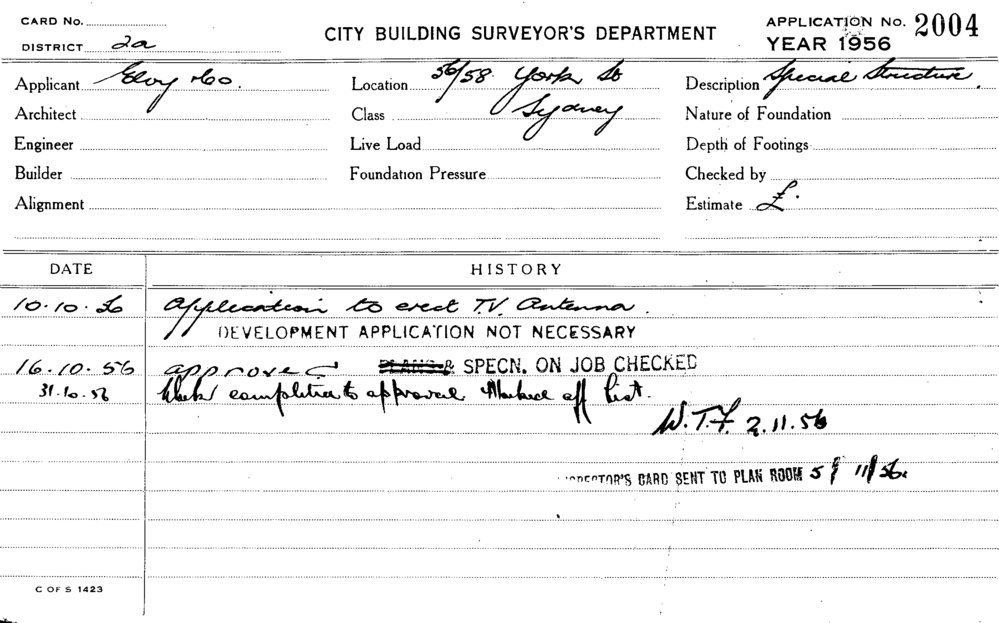 CARD No.
DISTRICT 2a
CITY BUILDING SURVEYOR'S DEPARTMENT
APPLICATION No. 2004
YEAR 1956
Applicant Eloy & Co.
Location 56/58 York St
Description Special Structure
Architect
Class Sydney
Nature of Foundation
Engineer
Live Load
Depth of Footings
Builder
Foundation Pressure
Checked by
Alignment
Estimate £.
DATE HISTORY
10.10.56 Application to erect T.V. Antenna.
DEVELOPMENT APPLICATION NOT NECESSARY
16.10.56 approved PLANS & SPECN. ON JOB CHECKED
31.10.56 Work completed to approval Marked off list.
W.T.F. 2.11.56
INSPECTOR'S CARD SENT TO PLAN ROOM 5/11/56.
C OF S 1423